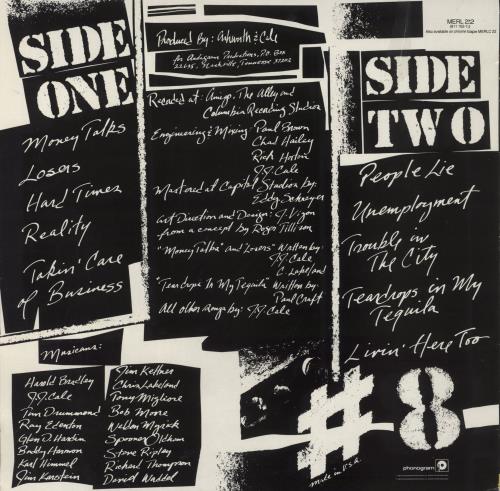 SIDE
ONE
Money Talks
Losers
Hard Times
Reality
Takin' Care
of Business
Produced By: Ashworth & Cale
for Audigram Productions, P.O. Box
22635, Nashville, Tennessee 37202
Recorded at: Amigo, The Alley and
Columbia Recording Studios
Engineering & Mixing: Paul Brown
Chad Hailey
Rick Horton
J.J. Cale
Mastered at Capitol Studios by:
Eddy Schreyer
Art Direction and Design: J. Vigon
from a concept by Roger Tillison
"Money Talks" and Losers" Written by:
J.J. Cale
C. Lakeland
"Teardrops In My Tequila" Written by:
Paul Craft
All other songs by: J.J. Cale
MERL 22
(811 152-1)
Also available on chrome tape MERLC 22
SIDE
TWO
People Lie
Unemployment
Trouble in
The City
Teardrops in My
Tequila
Livin' Here Too
Musicians:
Harold Bradley
J.J. Cale
Tim Drummond
Ray Edenton
Glen D. Hardin
Buddy Harmon
Karl Himmel
Jim Karstein
Jim Keltner
Chris Lakeland
Tony Migliore
Bob Moore
Weldon Myrick
Spooner Oldham
Steve Ripley
Richard Thompson
David Waddel
#8
made in U.S.A.
phonogram